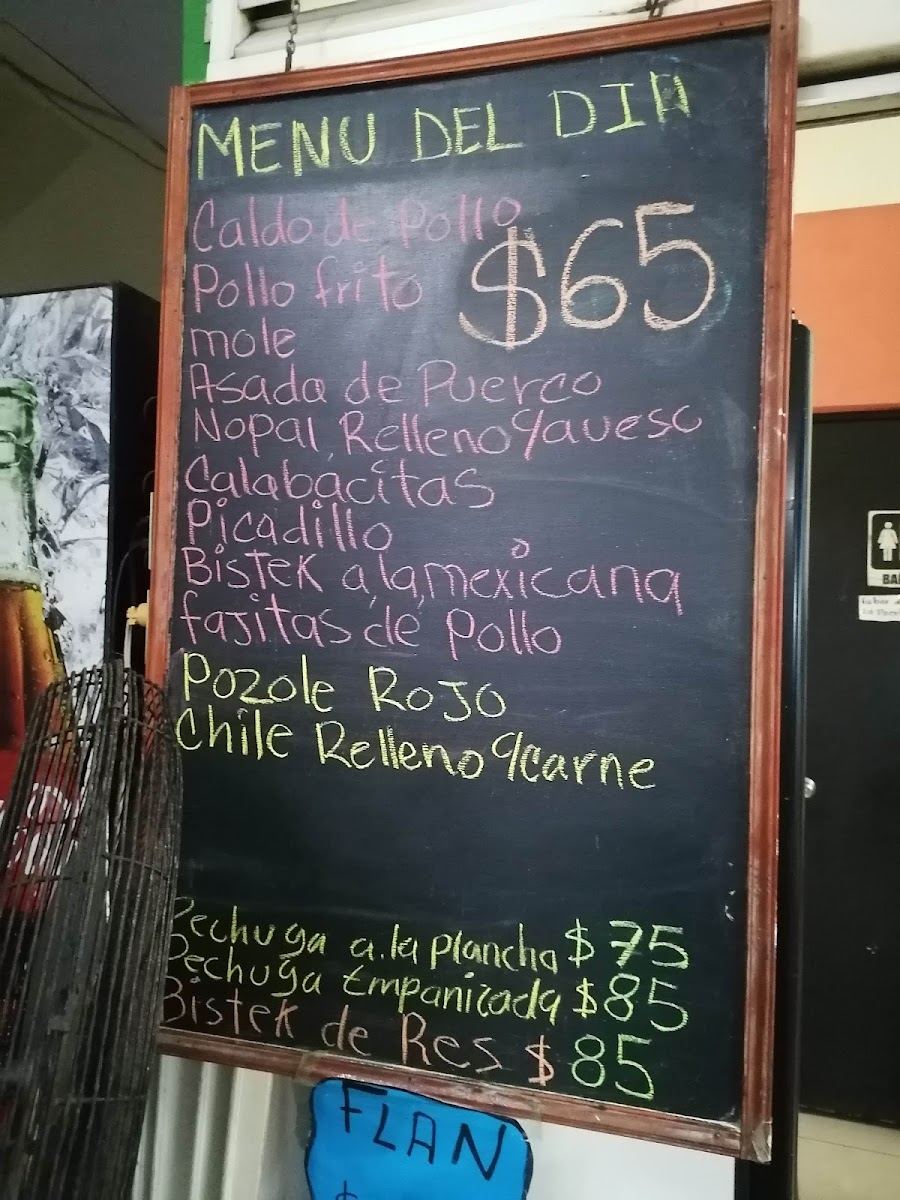 MENU DEL DIA
Caldo de Pollo
$65
Pollo frito
mole
Asada de Puerco
Nopal Relleno c/aueso
Calabacitas
Picadillo
Bistek a la mexicana
fajitas de pollo
Pozole Rojo
Chile Relleno c/carne
Pechuga a.la plancha $75
Pechuga Empanizada $85
Bistek de Res $85
FLAN
$